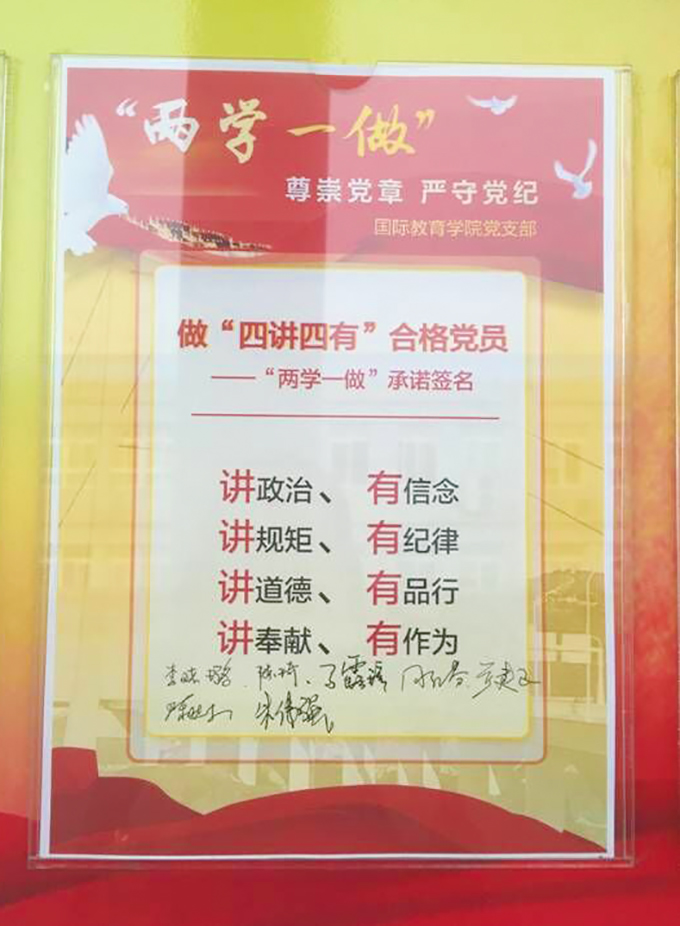 “两学一做”
尊崇党章 严守党纪
国际教育学院党支部
做“四讲四有”合格党员
——“两学一做”承诺签名
讲政治、有信念
讲规矩、有纪律
讲道德、有品行
讲奉献、有作为